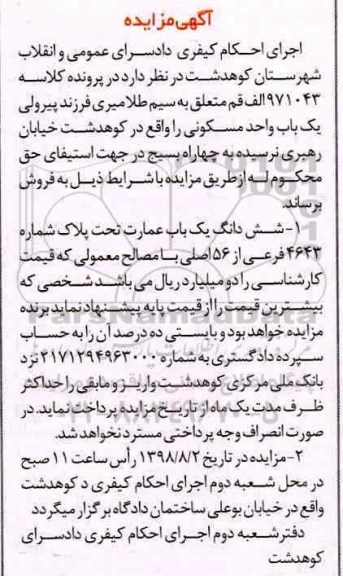 آگهی مزایده
اجرای احکام کیفری دادسرای عمومی و انقلاب
شهرستان کوهدشت در نظر دارد در پرونده کلاسه
۹۷۱۰۴۳الف قم متعلق به سیم طلامیری فرزند پیرولی
یک باب واحد مسکونی را واقع در کوهدشت خیابان
رهبری نرسیده به چهاراه بسیج در جهت استیفای حق
محکوم له از طریق مزایده با شرایط ذیل به فروش
برساند.
۱- شش دانگ یک باب عمارت تحت پلاک شماره
۴۶۴۳ فرعی از ۵۶ اصلی با مصالح معمولی که قیمت
کارشناسی را دو میلیارد ریال می باشد شخصی که
بیشترین قیمت را از قیمت پایه پیشنهاد نماید برنده
مزایده خواهد بود و بایستی ده درصد آن را به حساب
سپرده دادگستری به شماره ۲۱۷۱۲۹۴۹۶۳۰۰۰ نزد
بانک ملی مرکزی کوهدشت واریز و مابقی را حداکثر
ظرف مدت یک ماه از تاریخ مزایده پرداخت نماید. در
صورت انصراف وجه پرداختی مسترد نخواهد شد.
۲- مزایده در تاریخ ۱۳۹۸/۸/۲ رأس ساعت ۱۱ صبح
در محل شعبه دوم اجرای احکام کیفری د کوهدشت
واقع در خیابان بوعلی ساختمان دادگاه برگزار میگردد
دفتر شعبه دوم اجرای احکام کیفری دادسرای
کوهدشت